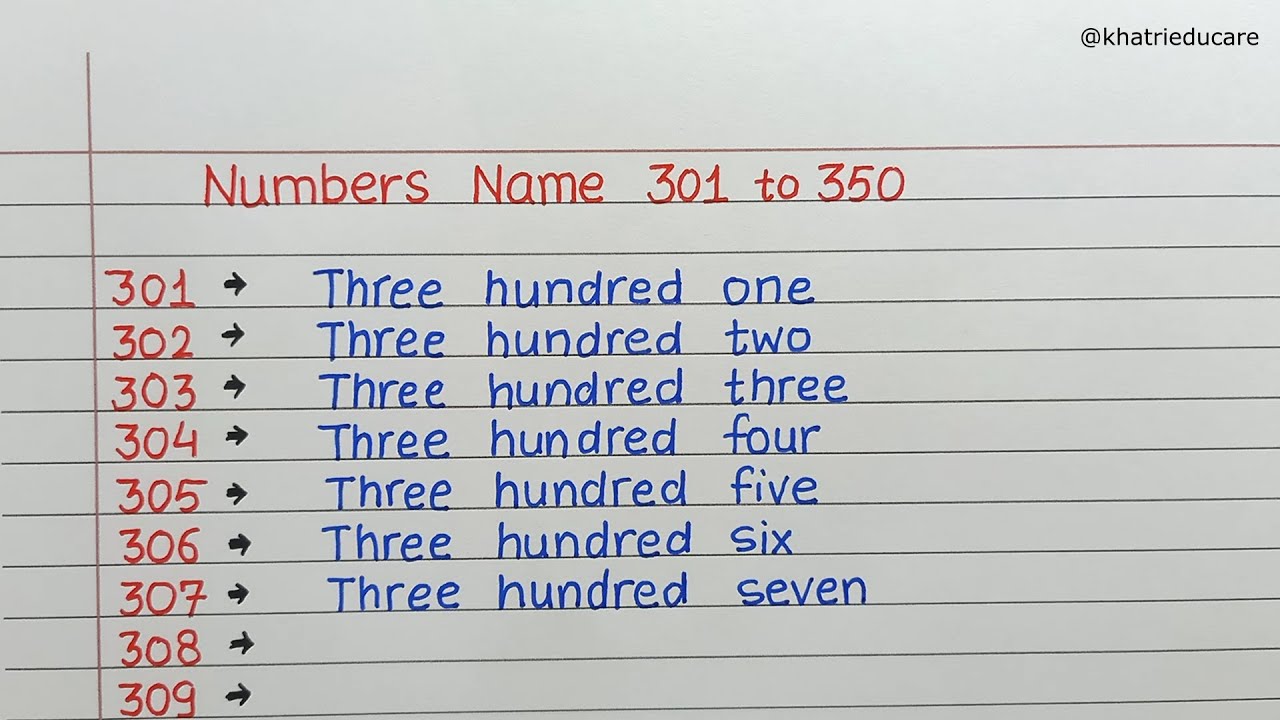 @khatrieducare
Numbers Name 301 to 350
301 → Three hundred one
302 → Three hundred two
303 → Three hundred three
304 → Three hundred four
305 → Three hundred five
306 → Three hundred six
307 → Three hundred seven
308 →
309 →